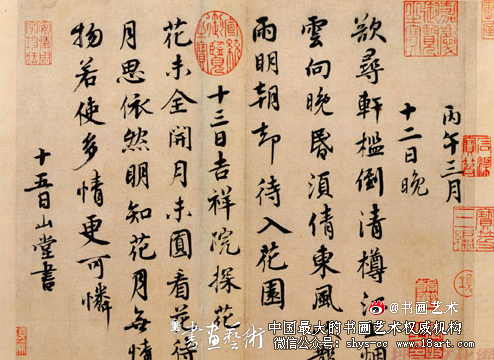 丙午三月
十二日晚
欲尋軒檻倒清樽江
雲向晚昏須倩東風
雨明朝却待入花園
十三日吉祥院探花
花未全開月未圓看花待
月思依然明知花月無情
物若使多情更可憐
十五日山堂書
嘉慶御覽之寶
宣統御覽之寶
項
@书画艺术
書畫藝術
中国最大的书画艺术权威机构
微信公众号: shys-cc www.18art.com